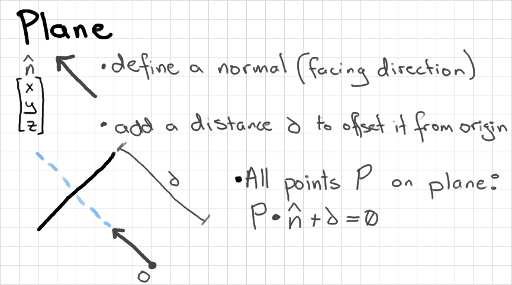 Plane
n̂
x
y
z
• define a normal (facing direction)
• add a distance d to offset it from origin
d
• All points P on plane:
P • n̂ + d = 0
O